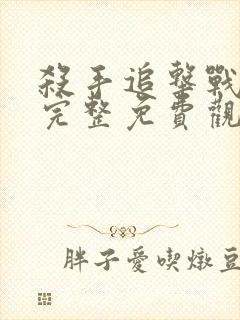 殺手追擊戰
完整免費觀
胖子愛喫燉豆